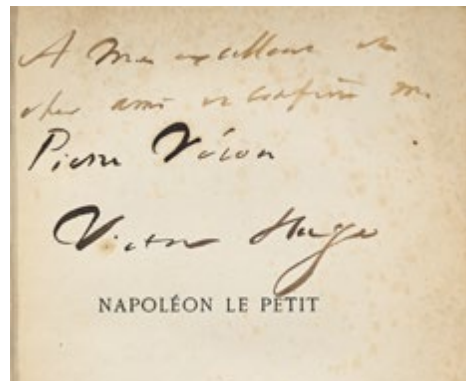 A Mon excellent et
cher ami et confrère M.
Pierre Véron
Victor Hugo
NAPOLÉON LE PETIT